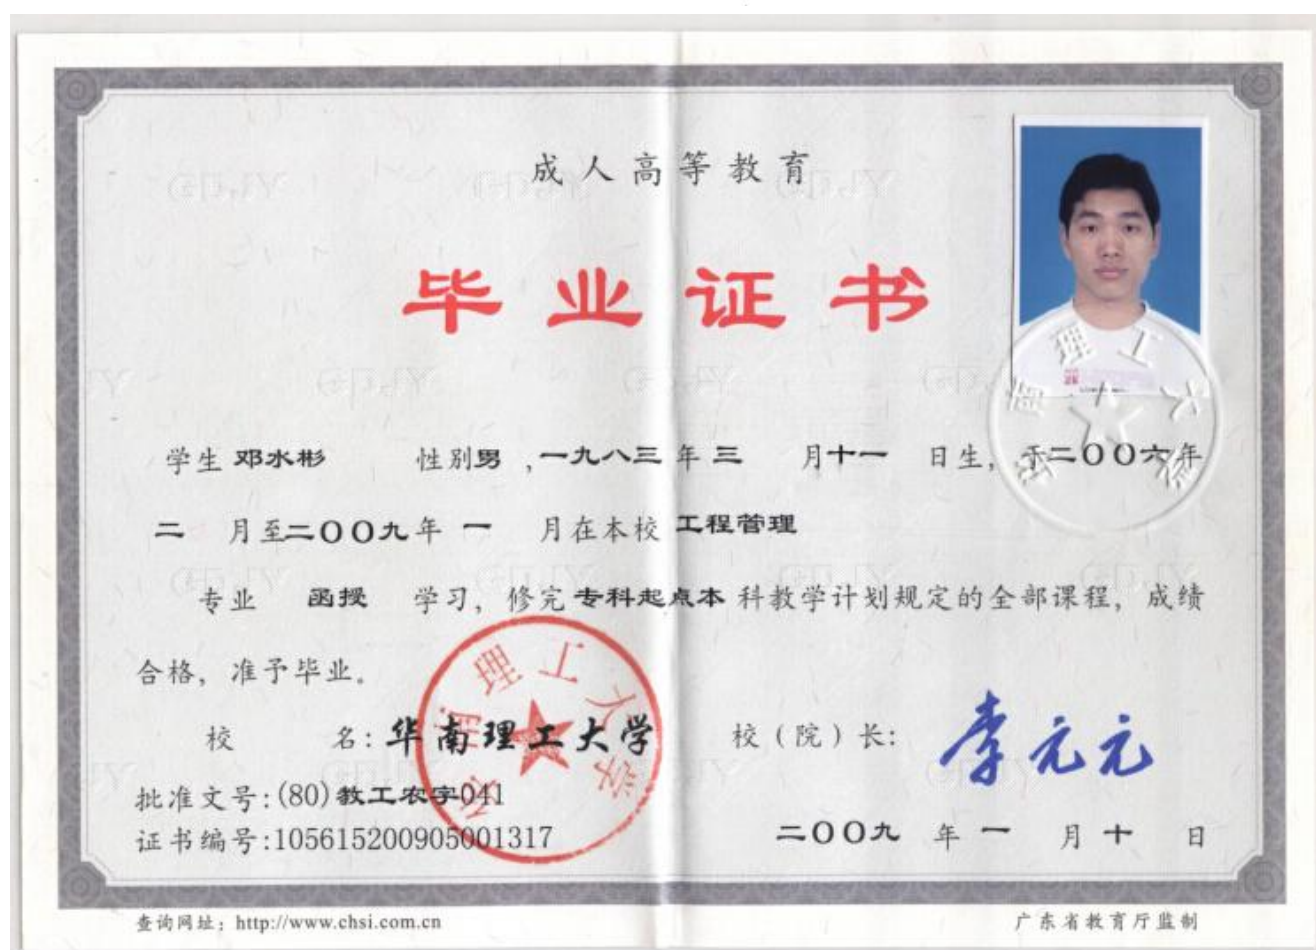 成人高等教育
毕业证书
学生 邓水彬 性别男 ,一九八三年三 月十一 日生, 于二〇〇六年
二 月至二〇〇九年 一 月在本校 工程管理
专业 函授 学习, 修完 专科起点本 科教学计划规定的全部课程, 成绩
合格, 准予毕业。
校 名: 华南理工大学 校(院)长: 李元元
批准文号:(80)教工农字041
证书编号:105615200905001317
二〇〇九 年 一 月 十 日
查询网址: http://www.chsi.com.cn 广东省教育厅监制
华南理工大学
华南理工大学
GDJY